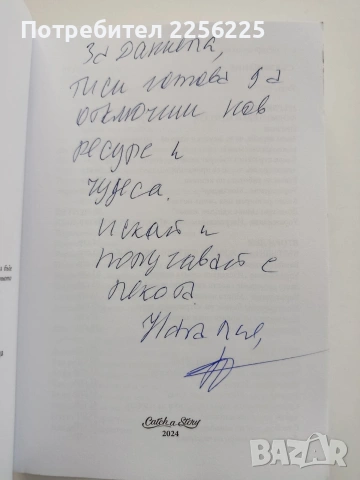 Позвънете на 2256225
За Даниела,
ти си готова да
отключиш нов
ресурс и
чудеса.
Искат и
получават с
лекота.
Catch a Story
2024
BAZAR
bg